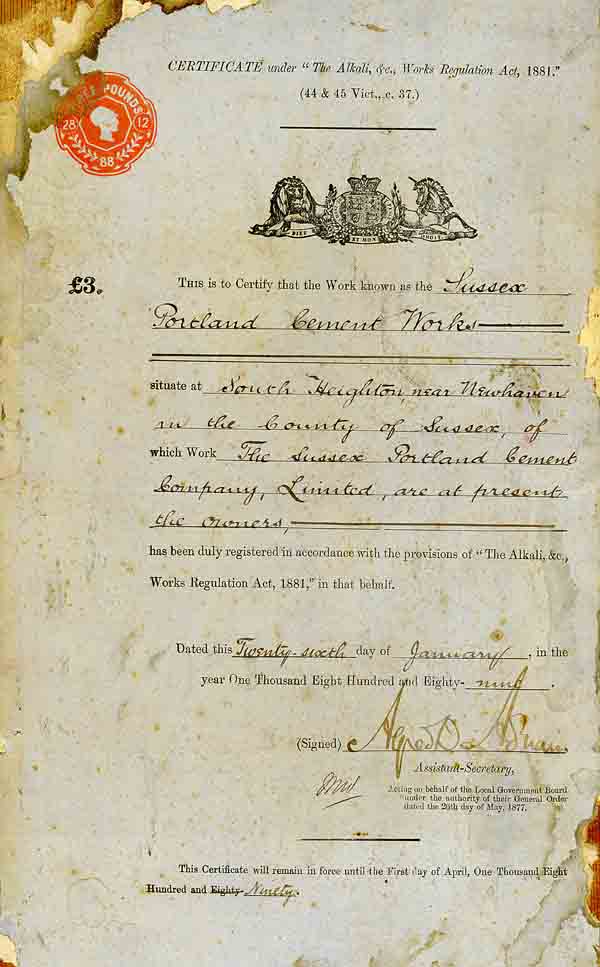 CERTIFICATE under "The Alkali, &c., Works Regulation Act, 1881."
(44 & 45 Vict., c. 37.)
THREE POUNDS
28 12
88
DIEU
ET MON
DROIT
£3.
THIS is to Certify that the Work known as the Sussex
Portland Cement Works
situate at South Heighton near Newhaven
in the County of Sussex, of
which Work The Sussex Portland Cement
Company, Limited, are at present
the owners,
has been duly registered in accordance with the provisions of "The Alkali, &c.,
Works Regulation Act, 1881," in that behalf.
Dated this Twenty-sixth day of January, in the
year One Thousand Eight Hundred and Eighty-nine.
(Signed) Alfred D
Assistant-Secretary,
Acting on behalf of the Local Government Board
under the authority of their General Order
dated the 26th day of May, 1877.
This Certificate will remain in force until the First day of April, One Thousand Eight
Hundred and Eighty- Ninety.